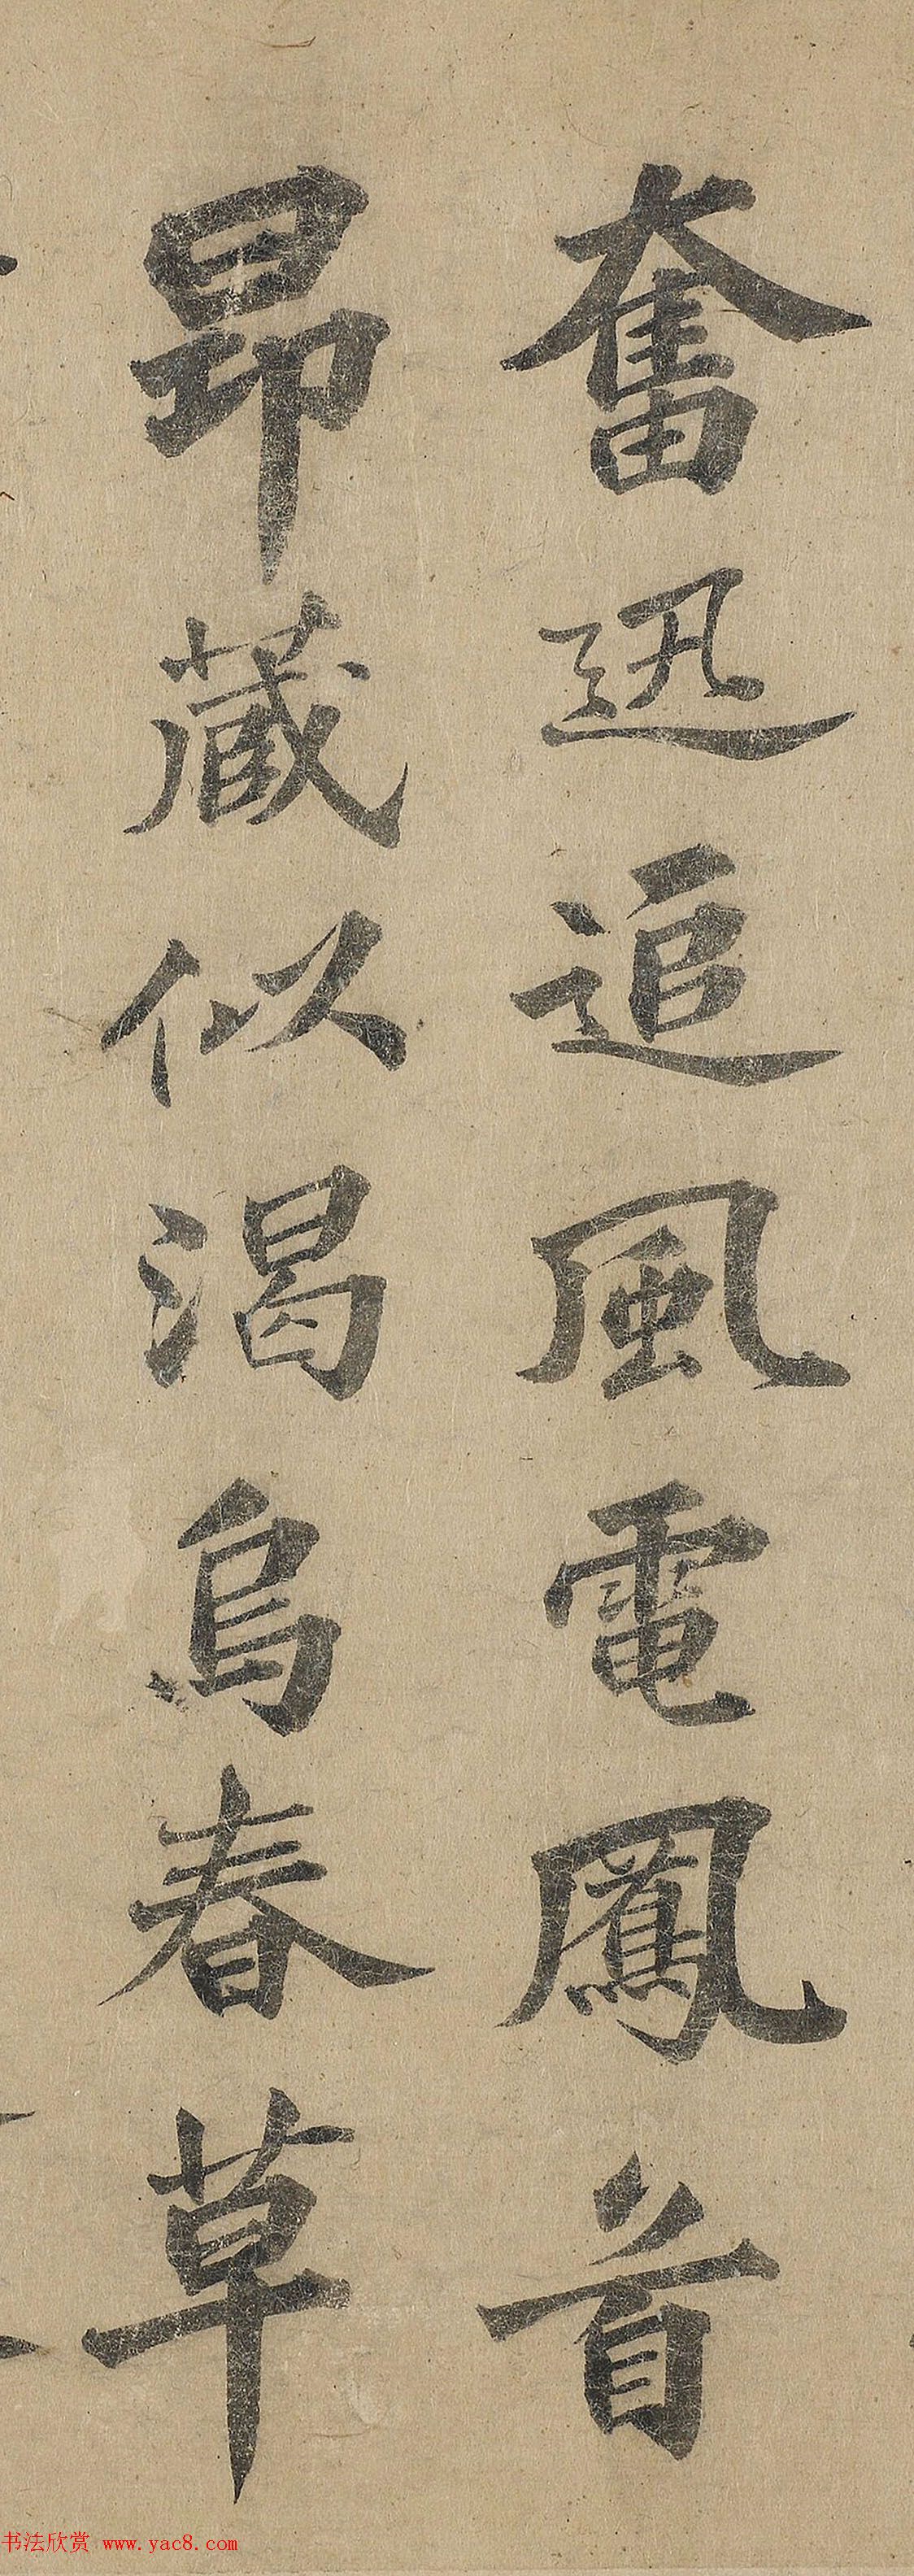 奮迅追風電鳳首
昂藏似渴烏春草
书法欣赏 www.yac8.com